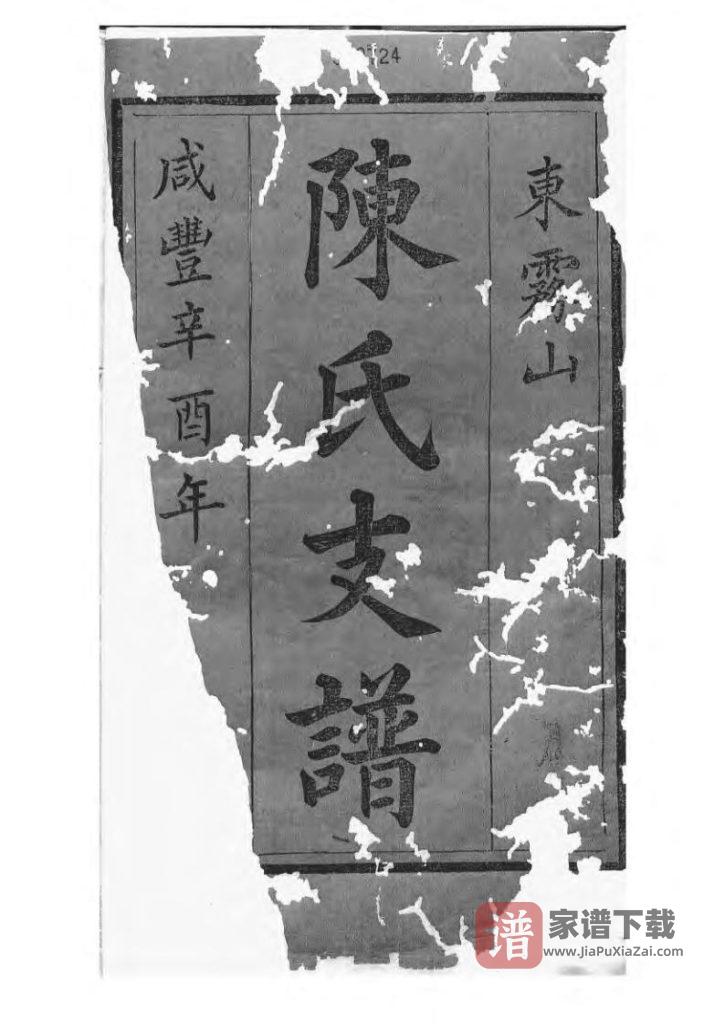 24
東霧山
陳氏支譜
咸豐辛酉年
谱 家谱下载
www.JiaPuXiaZai.com